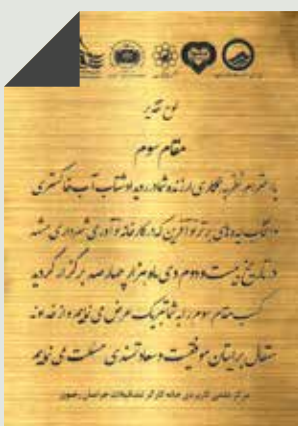 لوح تقدیر
مقام سوم
با احترام نظر به همکاری ارزنده شما در رویداد شتاب آب خاکستری
و انتخاب ایده‌های برتر نوآفرین که در کارخانه نوآوری شهرداری مشهد
در تاریخ بیست و دوم دی ماه هزار چهارصد برگزار گردید
کسب مقام سوم را به شما تبریک عرض می نماییم و از خداوند
متعال برایتان موفقیت و سعادتمندی مسئلت می نماییم
مرکز علمی کاربردی خانه کارگر تشکیلات خراسان رضوی